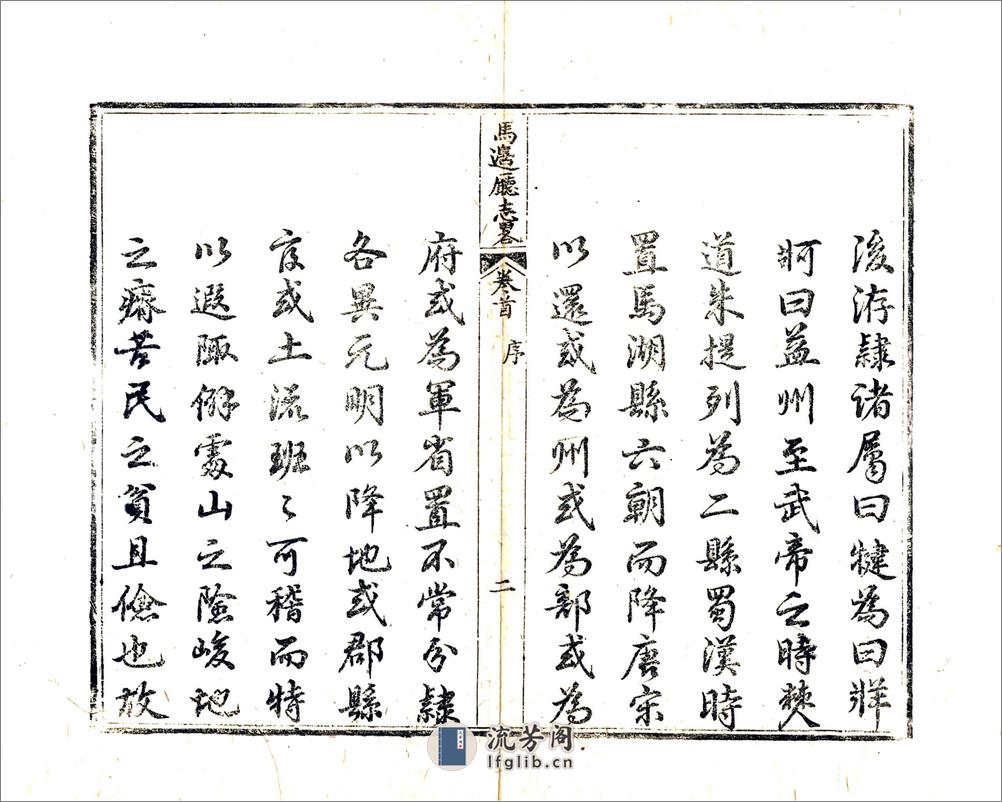 後洊隸諸屬曰犍為曰牂
牁曰益州至武帝之時僰
道朱提列為二縣蜀漢時
置馬湖縣六朝而降唐宋
以還或為州或為部或為
馬邊廳志畧
卷首
序
二
府或為軍省置不常分隸
各異元明以降地或郡縣
官或土流班〻可稽而特
以遐陬僻處山之險峻地
之瘠苦民之貧且儉也故
流芳阁
lfglib.cn